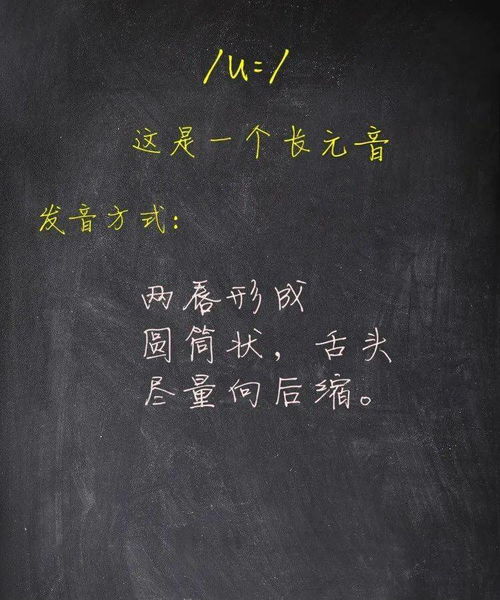 /u=/
这是一个长元音
发音方式:
两唇形成
圆筒状，舌头
尽量向后缩。